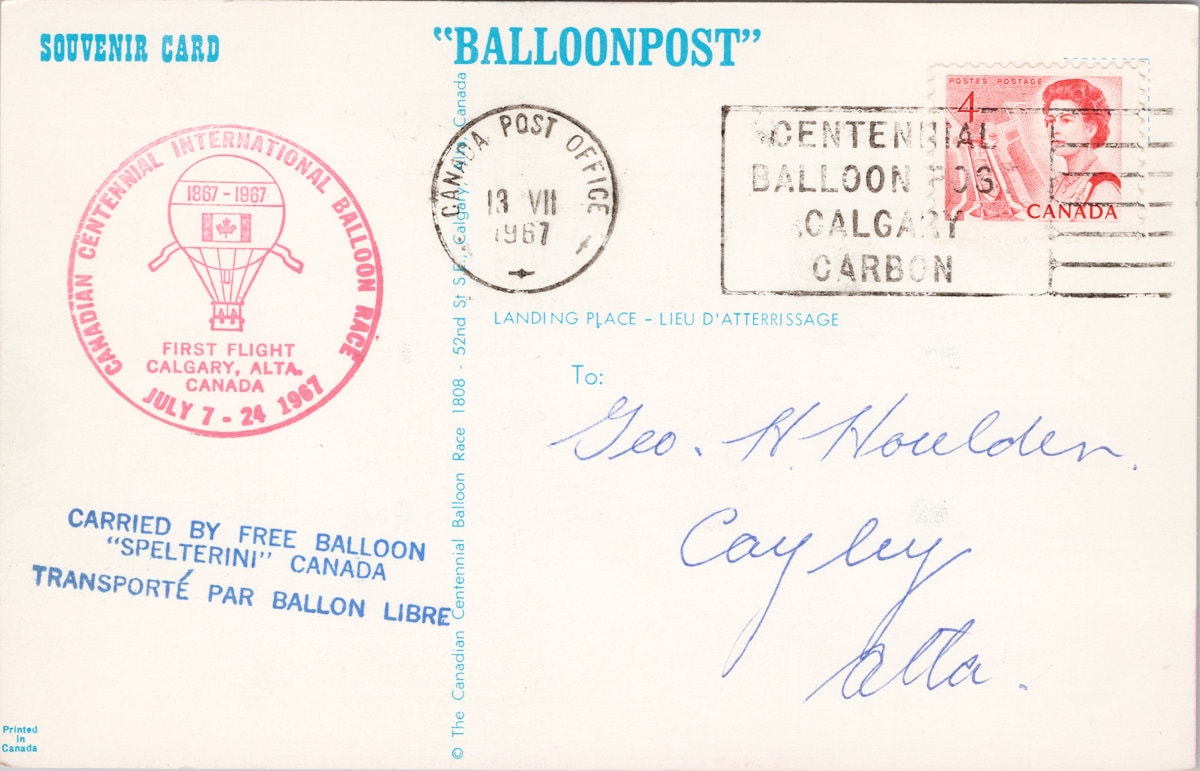 SOUVENIR CARD
"BALLOONPOST"
CANADIAN CENTENNIAL INTERNATIONAL BALLOON RACE
1867-1967
FIRST FLIGHT
CALGARY, ALTA.
CANADA
JULY 7-24 1967
CANADA POST OFFICE
13 VII
1967
CENTENNIAL
BALLOON POST
CALGARY
CARBON
POSTES POSTAGE
4
CANADA
LANDING PLACE - LIEU D'ATTERRISSAGE
To:
Geo. H. Houlden.
Cayley
Alta.
CARRIED BY FREE BALLOON
"SPELTERINI" CANADA
TRANSPORTÉ PAR BALLON LIBRE
© The Canadian Centennial Balloon Race 1808 - 52nd St S.E., Calgary, Canada
Printed
In
Canada